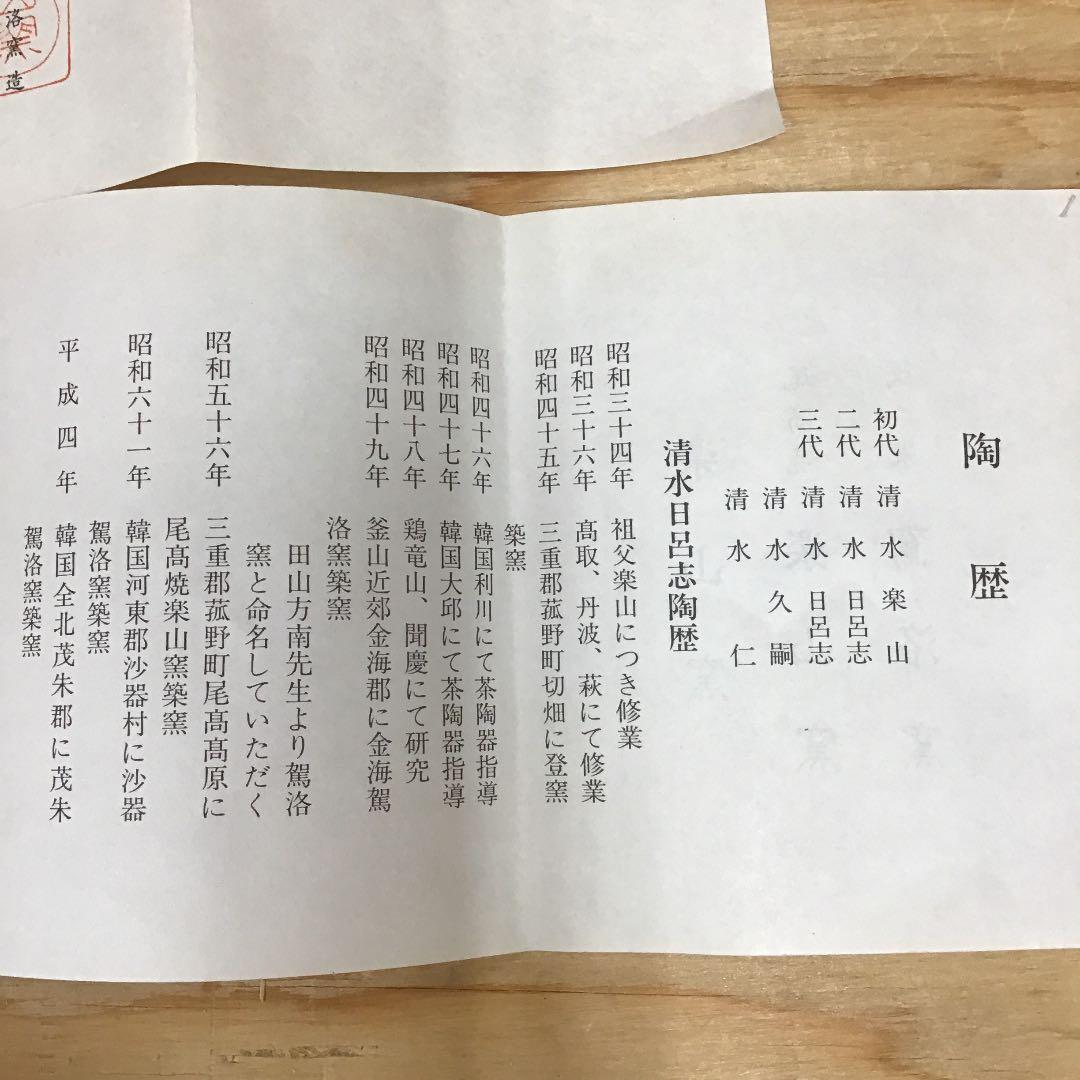 洛窯造
陶歴
初代 清水楽山
二代 清水日呂志
三代 清水日呂志
清水久嗣
清水仁
清水日呂志陶歴
昭和三十四年 祖父楽山につき修業
昭和三十六年 髙取、丹波、萩にて修業
昭和四十五年 三重郡菰野町切畑に登窯
築窯
昭和四十六年 韓国利川にて茶陶器指導
昭和四十七年 韓国大邱にて茶陶器指導
昭和四十八年 鶏竜山、聞慶にて研究
昭和四十九年 釜山近郊金海郡に金海駕
洛窯築窯
田山方南先生より駕洛
窯と命名していただく
昭和五十六年 三重郡菰野町尾髙髙原に
尾髙焼楽山窯築窯
昭和六十一年 韓国河東郡沙器村に沙器
駕洛窯築窯
平成四年 韓国全北茂朱郡に茂朱
駕洛窯築窯